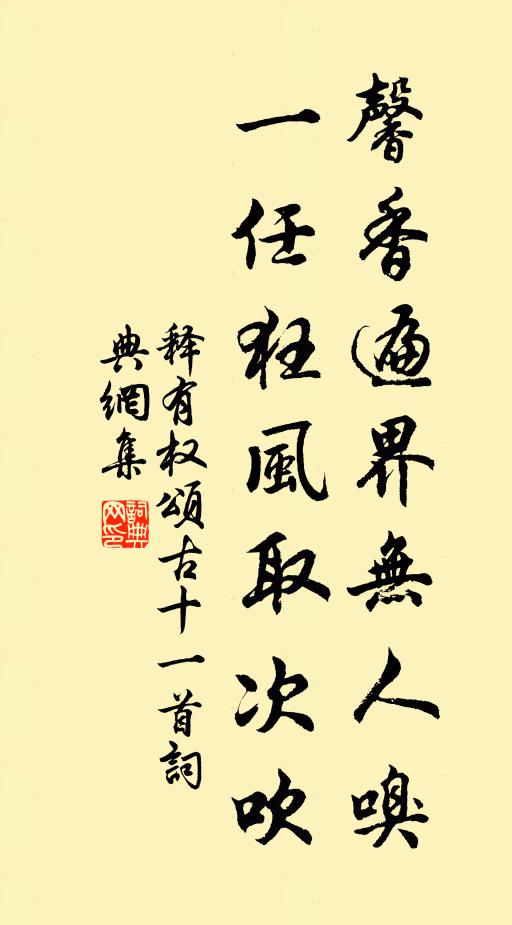 馨香遍界無人嗅
一任狂風取次吹
释有权頌古十一首詞
典網集
詞典网印